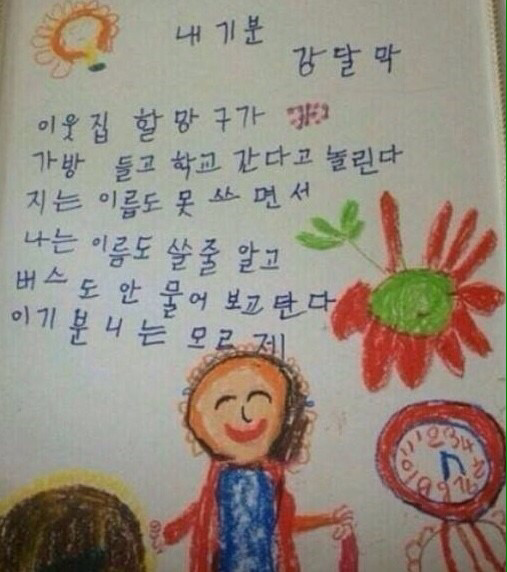 내 기분
강달막
이웃집 할망구가
가방 들고 학교 간다고 놀린다
지는 이름도 못 쓰면서
나는 이름도 쓸줄 알고
버스도 안 물어 보고 탄다
이 기분 니는 모르제